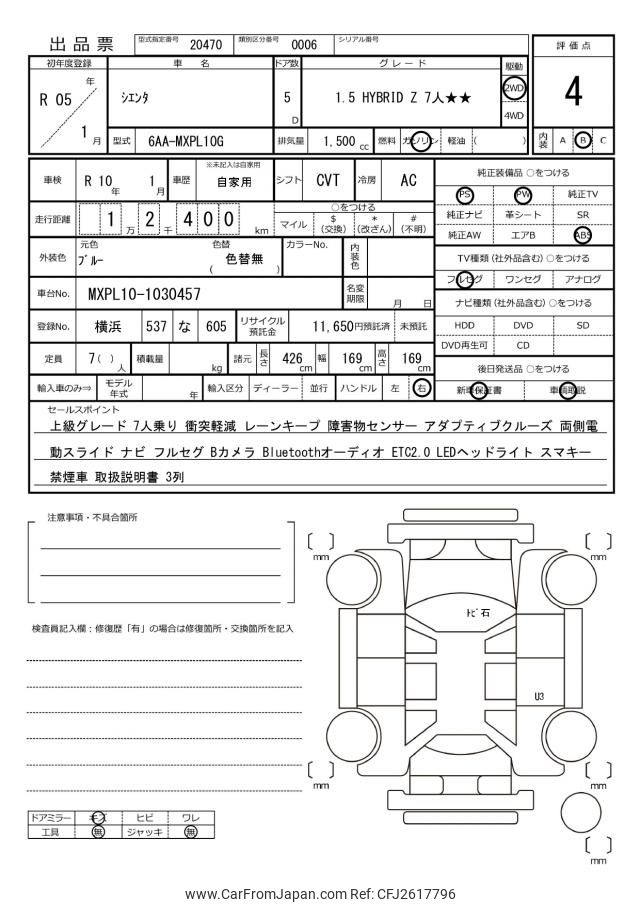 出品票 型式指定番号 20470 類別区分番号 0006 シリアル番号
評価点
4
内装 A B C
初年度登録 車名 ドア数 グレード 駆動
R 05 年 1 月 シエンタ 5 D 1.5 HYBRID Z 7人★★ 2WD 4WD
型式 6AA-MXPL10G 排気量 1,500 cc 燃料 ガソリン 軽油 ( )
車検 R 10 年 1 月 車歴 ※未記入は自家用 自家用 シフト CVT 冷房 AC
走行距離 1 万 2 千 4 0 0 km
○をつける
マイル $(交換) *(改ざん) #(不明)
外装色 元色 ブルー 色替 ( 色替無 ) カラーNo. 内装色
車台No. MXPL10-1030457 名変期限 月 日
登録No. 横浜 537 な 605 リサイクル預託金 11,650円預託済 未預託
定員 7 ( ) 人 積載量 kg 諸元 長さ 426 cm 幅 169 cm 高さ 169 cm
輸入車のみ⇒ モデル年式 年 輸入区分 ディーラー 並行 ハンドル 左 右
純正装備品 ○をつける
PS PW 純正TV
純正ナビ 革シート SR
純正AW エアB ABS
TV種類 (社外品含む) ○をつける
フルセグ ワンセグ アナログ
ナビ種類 (社外品含む) ○をつける
HDD DVD SD
DVD再生可 CD
後日発送品 ○をつける
新車保証書 車輌取説
セールスポイント
上級グレード 7人乗り 衝突軽減 レーンキープ 障害物センサー アダプティブクルーズ 両側電
動スライド ナビ フルセグ Bカメラ Bluetoothオーディオ ETC2.0 LEDヘッドライト スマキー
禁煙車 取扱説明書 3列
注意事項・不具合箇所
検査員記入欄：修復歴「有」の場合は修復箇所・交換箇所を記入
ドアミラー キズ ヒビ ワレ
工具 無 ジャッキ 無
mm
mm
トビ石
U3
mm
mm
mm
www.CarFromJapan.com Ref: CFJ2617796